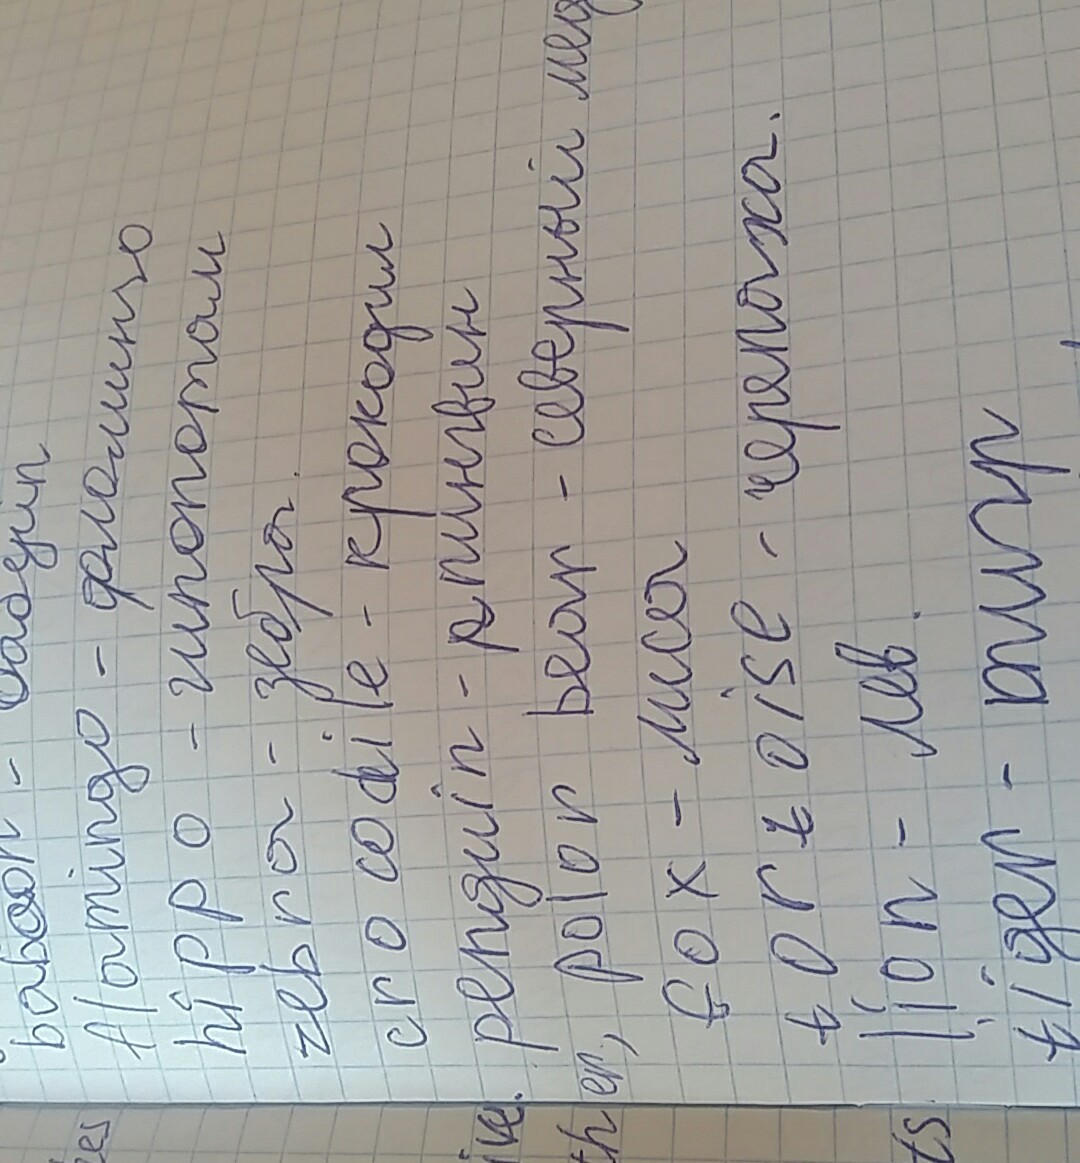 baboon - бабуин
flamingo - фламинго
hippo - гипопотам
zebra - зебра.
crocodile - крокодил
penguin - пингвин
polar bear - северный мед
fox - лиса
tortoise - черепаха.
lion - лев.
tiger - тигр